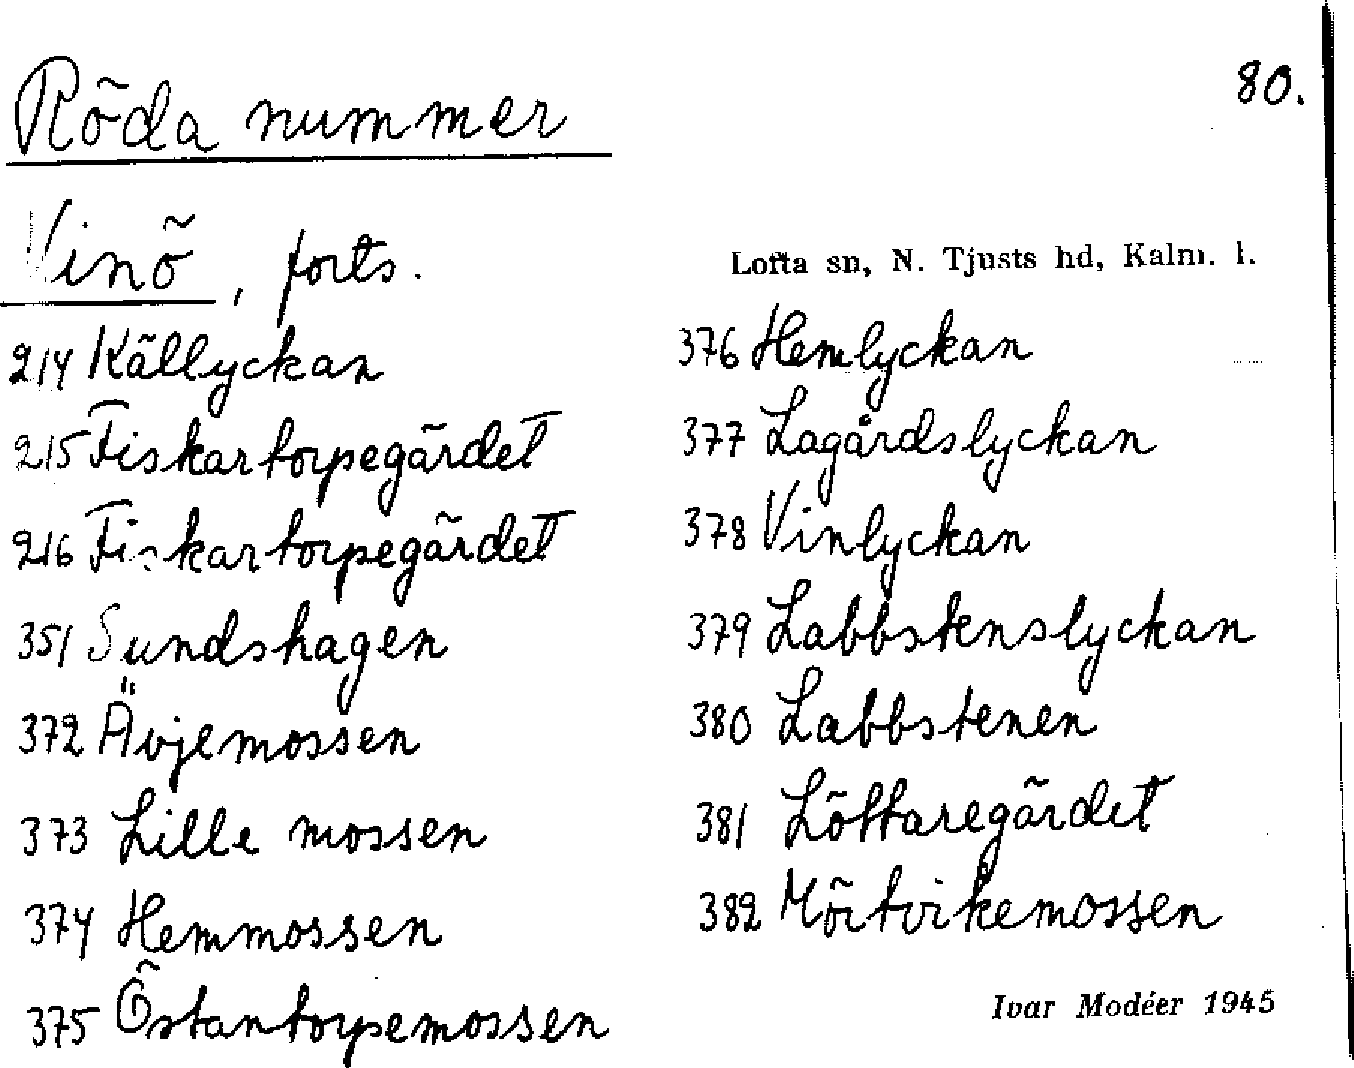 80.
Röda nummer
Vinö, forts.
Lofta sn, N. Tjusts hd, Kalm. l.
214 Källyckan
215 Fiskartorpegärdet
216 Fiskartorpegärdet
351 Sundshagen
372 Ävjemossen
373 Lille mossen
374 Hemmossen
375 Östantorpemossen
376 Hemlyckan
377 Lagårdslyckan
378 Vinlyckan
379 Labbstenslyckan
380 Labbstenen
381 Löttaregärdet
382 Mörtvikemossen
Ivar Modéer 1945